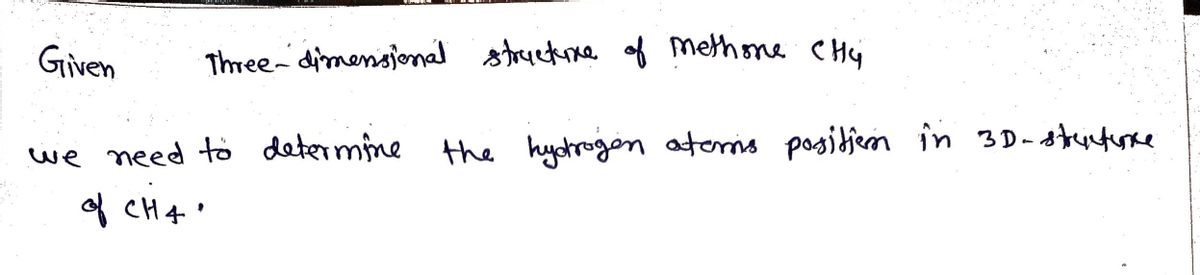 Given Three-dimensional structure of methane CH4
we need to determine the hydrogen atoms position in 3D-structure
of CH4.